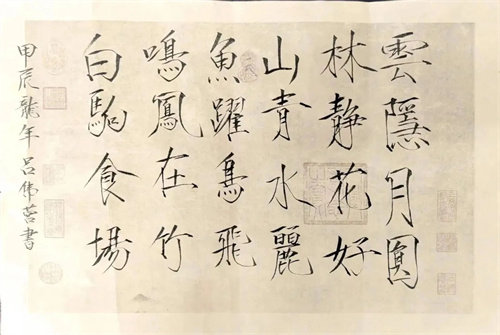 雲隱月圓
林靜花好
山青水麗
魚躍鳥飛
鳴鳳在竹
白駒食場
甲辰龍年 呂伟書